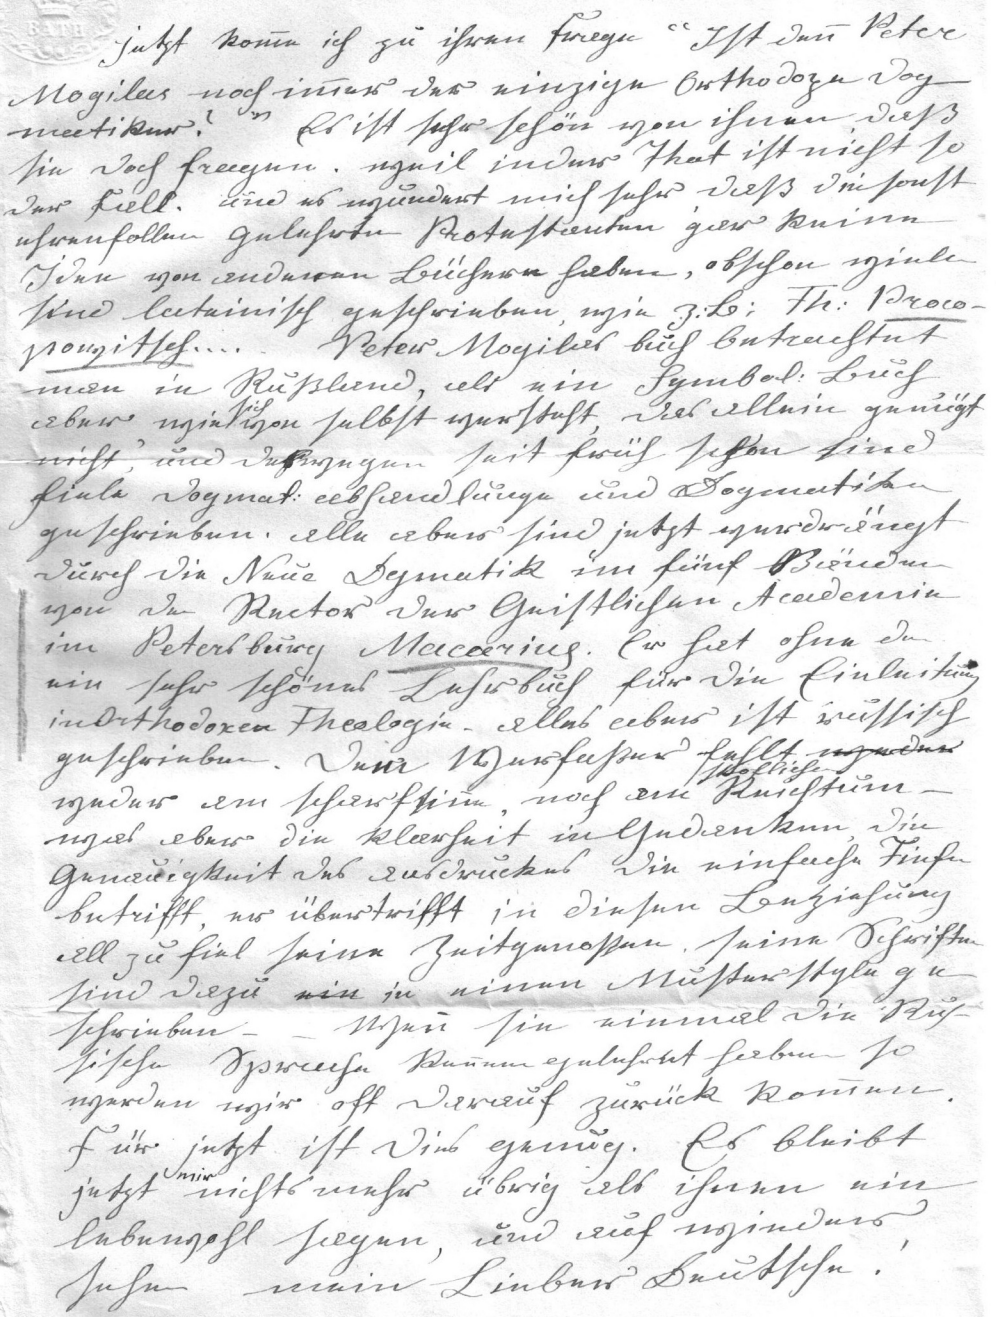 BATH
jetzt kom̄e ich zu ihren Frage "Ist den̄ Peter
Mogilas noch im̄er der einzige Orthodoxe Dog
matiker?" Es ist sehr schön von ihnen, daß
sie doch fragen. weil in der That ist nicht so
der Fall. und es wundert mich sehr, daß die sonst
ehrenfollen gelehrte Protestanten gar keine
Idee von anderen Büchern haben, obschon viele
sind lateinisch geschrieben, wie z. b: Th: Proco-
powitsch.... Peter Mogilas buch betrachtet
man in Rußland, als ein Symbol: Buch
aber wie sich von selbst versteht, das allein genügt
nicht, und deswegen seit früh schon sind
fiele dogmat: abhandlunge und Dogmatiken
geschrieben. alle aber sind jetzt verdrängt
durch die Neue Dgmatik im fünf Bänden
von de Rector der Geistlichen Academie
im Petersburg Macarius. Er hat ohne de
ein sehr schönes Lehrbuch für die Einleitung
in Orthodoxen Theologie. alles aber ist russisch
geschrieben. Dem Verfaßer fehlt weder
weder am scharfsinn, noch am Reichtum –
was aber die klarheit in Gedanken, die
Genauigkeit des ausdruckes die einfache Tiefe
betrifft, er übertrifft in diesen Beziehung
all zu fiel seine Zeitgenoßen. seine Schriften
sind dazu ein in einen Musterstyle ge
schrieben – Wen̄ sie einmal die Rus-
sische Sprache ken̄en gelehrnt haben so
werden wir oft darauf zurück kom̄en.
Für jetzt ist dies genug. Es bleibt
jetzt mir nichts mehr übrig als ihnen ein
lebewohl sagen, und auf wieder
sehen mein Lieber Deutsche!